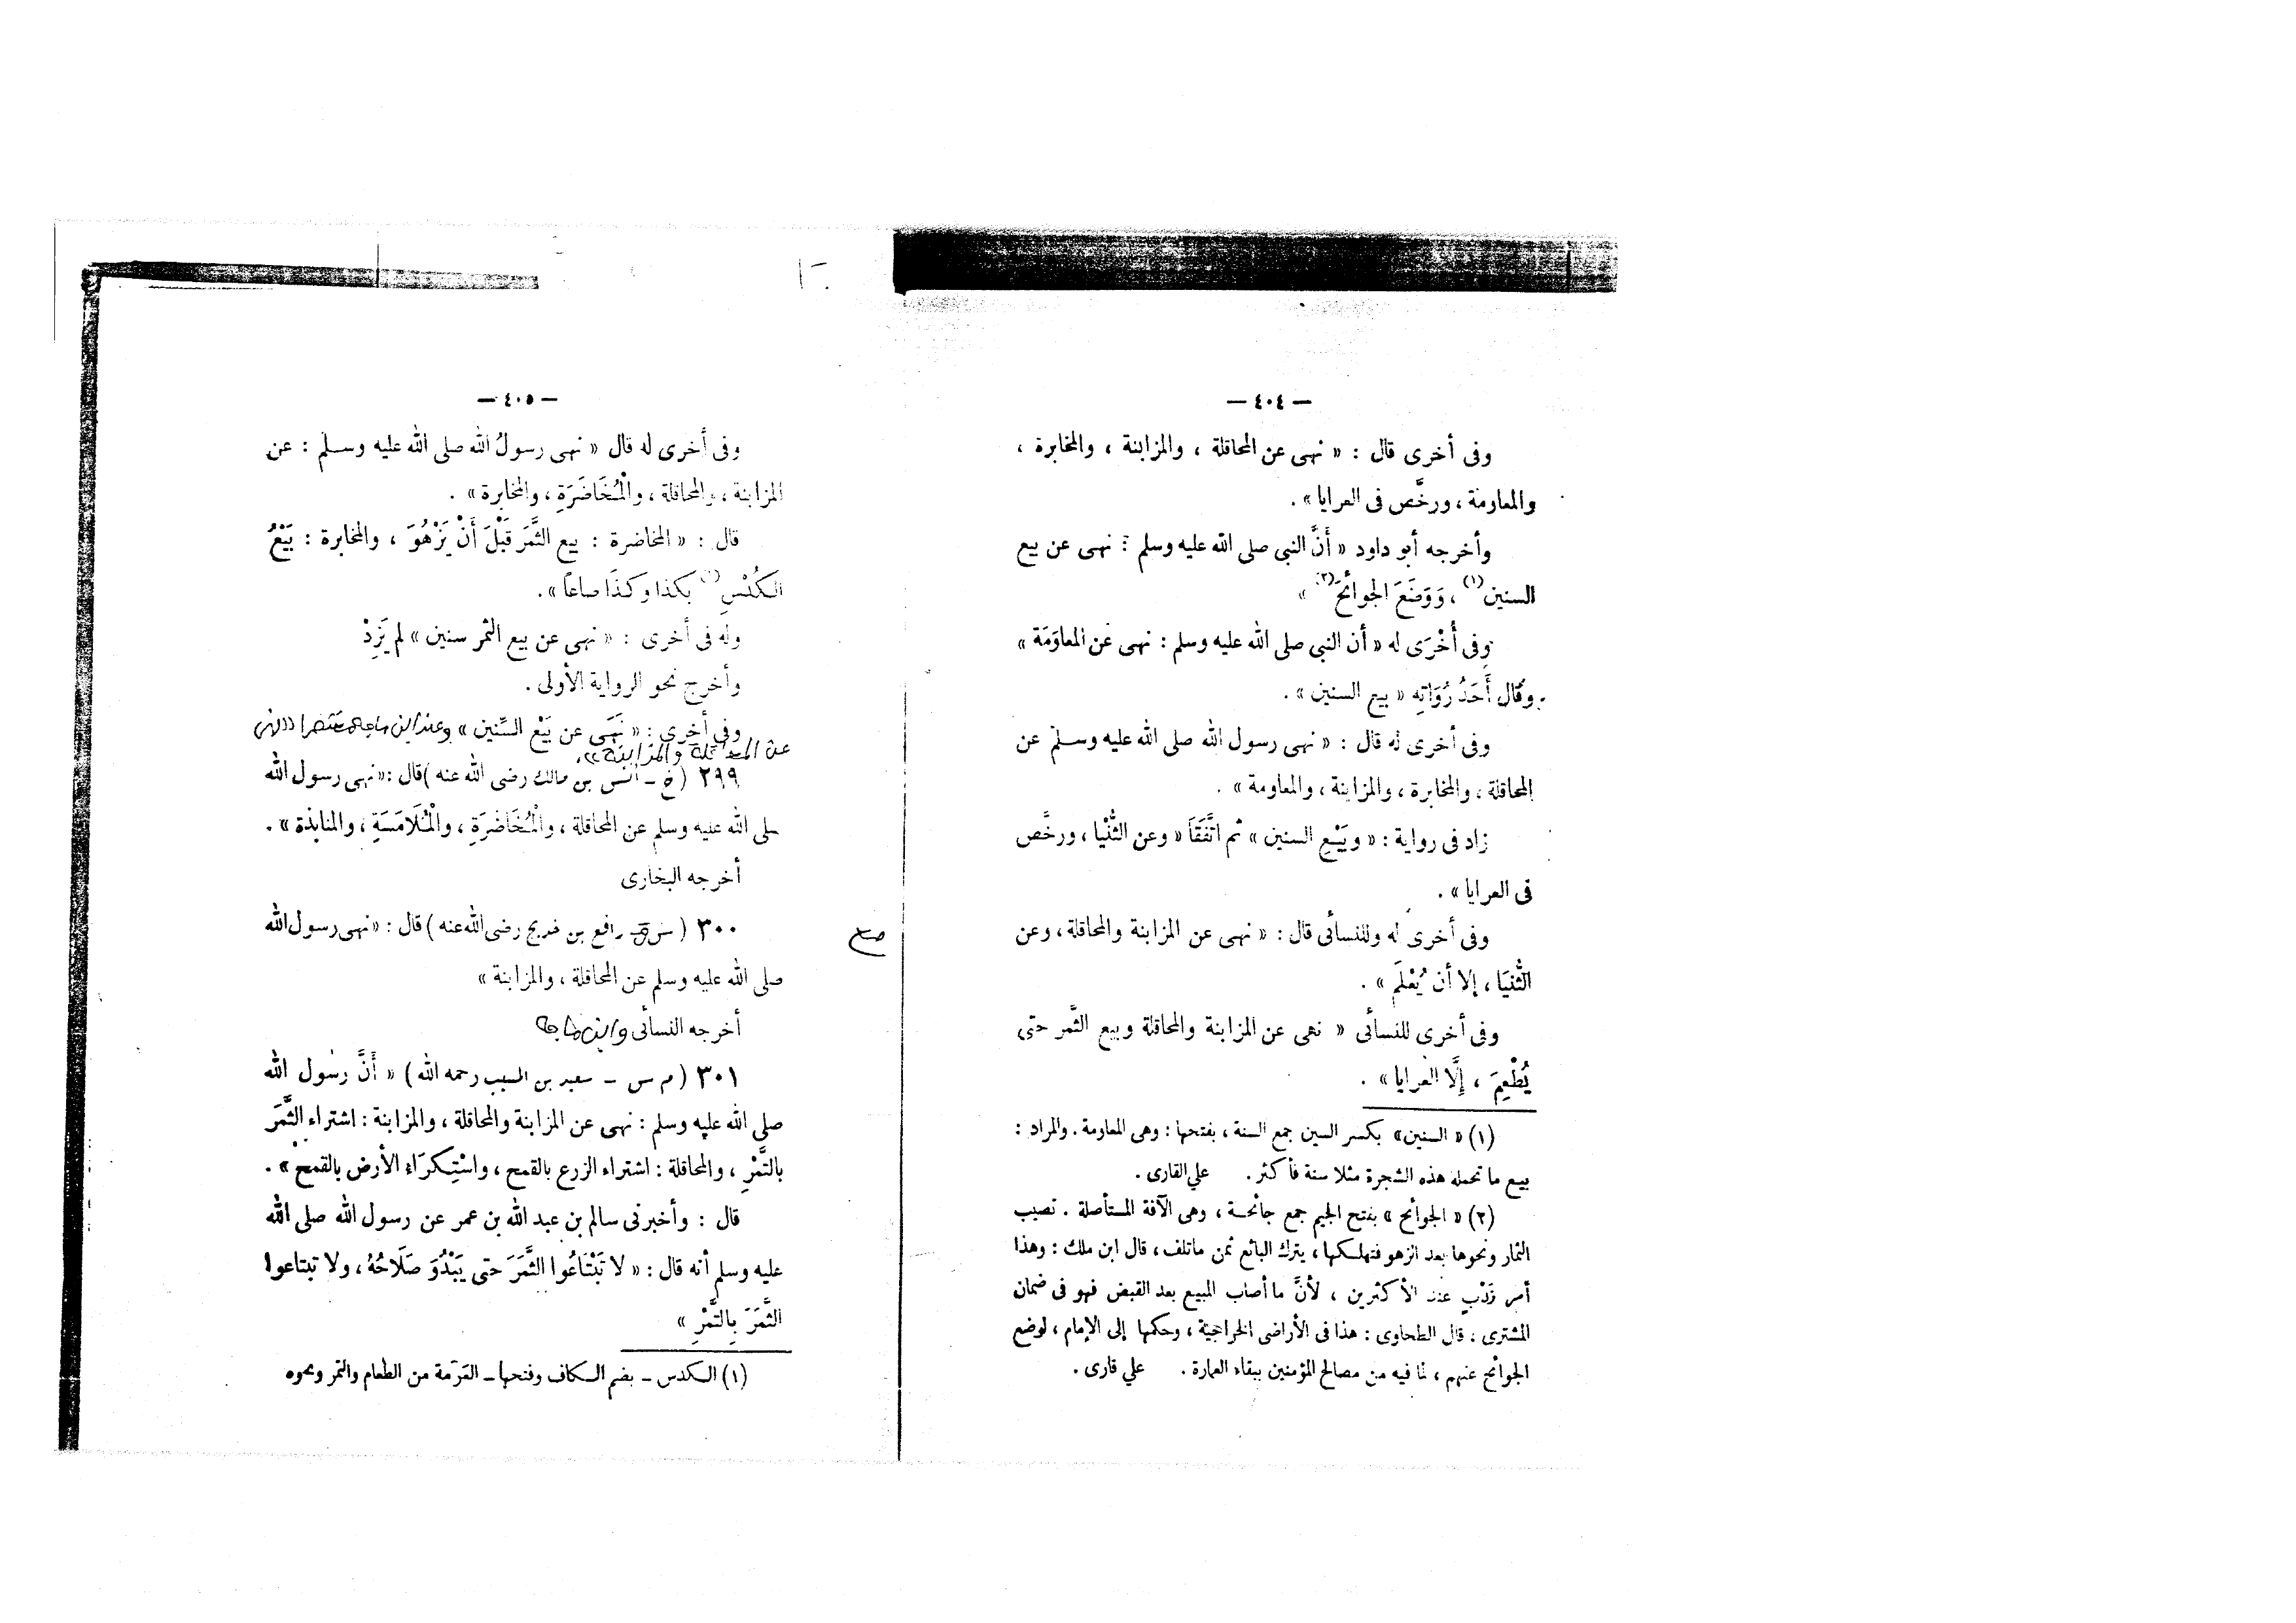 — ٤٠٤ —
وفى أخرى قال : « نهى عن المحاقلة ، والمزابنة ، والمخابرة ،
والمعاومة ، ورخَّص فى العرايا » .
وأخرجه أبو داود « أَنَّ النبى صلى الله عليه وسلم : نهى عن بيع
السنين (١) ، وَوَضَعَ الجوائحَ (٢) »
وفى أُخْرَى له « أن النبى صلى الله عليه وسلم : نهى عن المعاوَمَة »
وقال أَحَدُ رُوَاتِهِ « بيع السنين » .
وفى أخرى له قال : « نهى رسول الله صلى الله عليه وسلم عن
المحاقلة ، والمخابرة ، والمزابنة ، والمعاومة » .
زاد فى رواية : « وبَيْعِ السنين » ثم اتَّفَقَا « وعن الثُّنْيا ، ورخَّص
فى العرايا » .
وفى أخرى له وللنسائى قال : « نهى عن المزابنة والمحاقلة ، وعن
الثُّنيَا ، إلا أن يُعْلَمَ » .
وفى أخرى للنسائى « نهى عن المزابنة والمحاقلة وبيع الثَّمر حتى
يُطْعِمَ ، إِلَّا العرايا » .
(١) « السنين » بكسر السين جمع السنة ، بفتحها : وهى المعاومة . والمراد :
بيع ما تحمله هذه الشجرة مثلا سنة فأكثر . علي القارى .
(٢) « الجوائح » بفتح الجيم جمع جائحة ، وهى الآفة المستأصلة . تصيب
الثمار ونحوها بعد الزهو فتهلكها ، يترك البائع ثمن ماتلف ، قال ابن ملك : وهذا
أمر نَدْبٍ عند الأكثرين ، لأنَّ ما أصاب المبيع بعد القبض فهو فى ضمان
المشترى . قال الطحاوى : هذا فى الأراضى الخراجية ، وحكمها إلى الإمام ، لوضع
الجوائح عنهم ، لما فيه من مصالح المؤمنين ببقاء العمارة . علي قارى .
— ٤٠٥ —
وفى أخرى له قال « نهى رسولُ الله صلى الله عليه وسلم : عن
المزابنة ، والمحاقلة ، والْمُخَاضَرَةِ ، والمخابرة » .
قال : « المخاضرة : بيع الثَّمَر قَبْلَ أَنْ يَزْهُوَ ، والمخابرة : بَيْعُ
الكُدْسِ (١) بكذا وكذَا صاعاً » .
وله فى أخرى : « نهى عن بيع الثمر سنين » لم يَزِدْ
وأخرج نحو الرواية الأولى .
وفى أخرى : « نَهَى عن بَيْع السِّنين » وعند ابن ماجه مختصرا «نهى
عن المحاقلة والمزابنة» .
٢٩٩ ( خ – أنس بن مالك رضى الله عنه ) قال : « نهى رسول الله
صلى الله عليه وسلم عن المحاقلة ، والْمُخَاضَرَةِ ، والْمُلَامَسَةِ ، والمنابذة » .
أخرجه البخارى
٣٠٠ ( س ق رافع بن خديج رضى الله عنه ) قال : « نهى رسول الله
صلى الله عليه وسلم عن المحاقلة ، والمزابنة »
أخرجه النسائى وابن ماجه
٣٠١ ( م س – سعيد بن المسيب رحمه الله ) « أَنَّ رسُول الله
صلى الله عليه وسلم : نهى عن المزابنة والمحاقلة ، والمزابنة : اشتراء الثَّمَر
بالتَّمْرِ ، والمحاقلة : اشتراء الزرع بالقمح ، واسْتِكرَاء الأرض بالقمح » .
قال : وأخبرنى سالم بن عبد الله بن عمر عن رسول الله صلى الله
عليه وسلم أنه قال : « لا تَبْتَاعُوا الثَّمَرَ حتى يَبْدُوَ صَلَاحُهُ ، ولا تبتاعوا
الثَّمَرَ بِالتَّمْرِ »
(١) الكدس – بضم الكاف وفتحها – العَرَمة من الطعام والتمر ونحوه